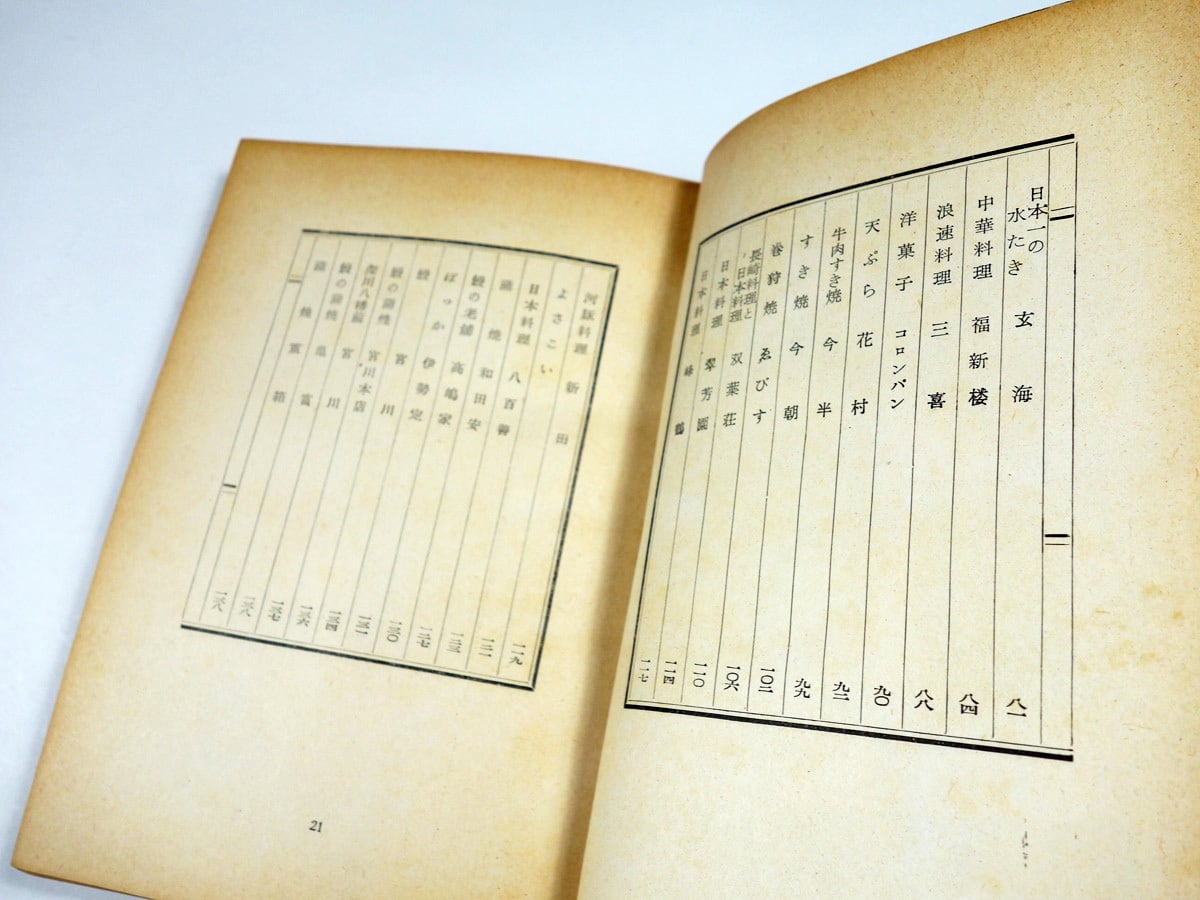 日本一の水たき 玄海 八一
中華料理 福新楼 八四
浪速料理 三喜 八八
洋菓子 コロンバン 九〇
天ぷら 花村 九二
牛肉すき焼 今半 九九
すき焼 今朝 一〇二
巻狩焼 ゑびす 一〇六
長崎料理と日本料理 双葉荘 一一〇
日本料理 翠芳園 一一四
日本料理 鶴 一一七
河豚料理 新田 一一九
よさこい 一二一
日本料理 八百善 一二三
焼 和田安 一二七
鰻の老舗 高嶋家 一三〇
ぼっか 伊勢定 一三一
鰻 一三四
鰻の蒲焼 宮川 一三六
深川八幡前 宮川本店 一三七
鰻の蒲焼 宮川 一三八
重箱 一三八
21